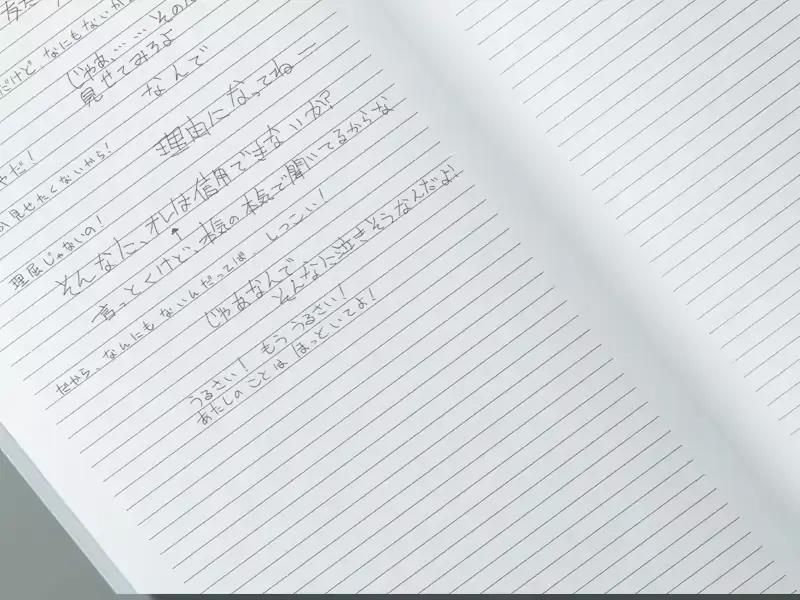 だけど なにもないか
じゃあ、……その
見せてみろよ
なんで
やだ!
理由になってねー
見せたくないから!
理屈じゃないの!
そんなに、オレは信用できないか?
言っとくけど、本気の本気で聞いてるからな
だから、なんにもないんだってば、しつこい!
じゃあなんで
そんなに泣きそうなんだよ!
うるさい! もううるさい!
あたしのことは ほっといてよ!